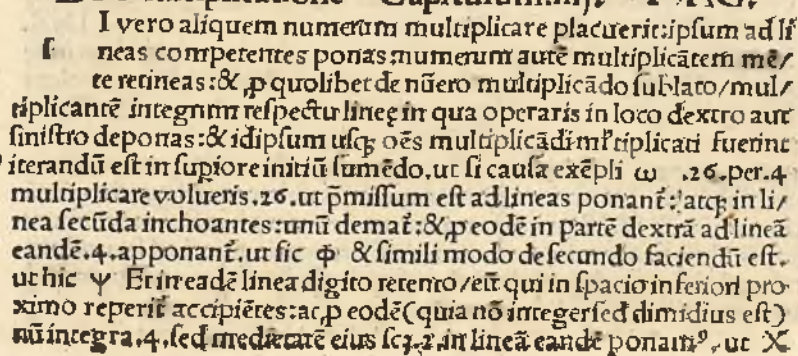 I vero aliquem numerum multiplicare placuerit:ipſum ad li
neas competentes ponas:numerum autē multiplicātem mē/
te retineas:&,p quolibet de nūero multiplicādo ſublato/mul/
tiplicantē integrum reſpectu lineę in qua operaris in loco dextro aut
ſiniſtro deponas:& idipſum uſq; oēs multiplicādi multiplicati fuerint
iterandū eſt in ſupiore initiū ſumēdo.ut ſi cauſa exēpli ω .26.per.4
multiplicare volueris.26.ut p̄miſſum eſt ad lineas ponant̄:atq; in li/
nea ſecūda inchoantes:unū demat̄:&,p eodē in partē dextrā ad lineā
eandē.4.apponant̄.ut ſic φ & ſimili modo de ſecundo faciendū eſt.
ut hic ψ Et in eadē linea digito retento/eū qui in ſpacio inferiori pro
ximo reperit̄ accipiētes:ac,p eodē(quia nō integer ſed dimidius eſt)
nū integra.4.ſed medietatē eius ſcꝫ.2.in lineā eandē ponamꝰ.ut X